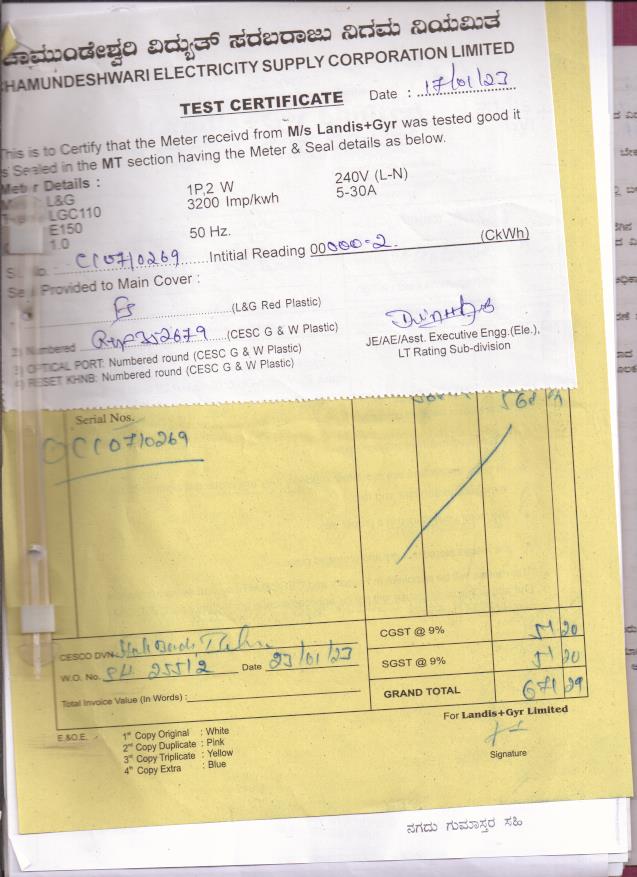 ಚಾಮುಂಡೇಶ್ವರಿ ವಿದ್ಯುತ್ ಸರಬರಾಜು ನಿಗಮ ನಿಯಮಿತ
HAMUNDESHWARI ELECTRICITY SUPPLY CORPORATION LIMITED
TEST CERTIFICATE Date : 17/01/23
This is to Certify that the Meter receivd from M/s Landis+Gyr was tested good it
is Sealed in the MT section having the Meter & Seal details as below.
Meter Details :
L&G 1P,2 W 240V (L-N)
LGC110 3200 Imp/kwh 5-30A
E150
1.0 50 Hz.
CC070269 Intitial Reading 00000=2 (CkWh)
Provided to Main Cover :
(L&G Red Plastic)
2) Numbered 352679 (CESC G & W Plastic)
3) OPTICAL PORT: Numbered round (CESC G & W Plastic)
4) RESET KHNB: Numbered round (CESC G & W Plastic)
JE/AE/Asst. Executive Engg.(Ele.),
LT Rating Sub-division
Serial Nos. 568
CC070269
CGST @ 9% 51 20
CESCO DVN
SGST @ 9% 51 20
W.O. No. 25512 Date 23/01/23
GRAND TOTAL 671 29
Total Invoice Value (In Words) :
For Landis+Gyr Limited
E.&O.E. 1st Copy Original : White
2nd Copy Duplicate : Pink
3rd Copy Triplicate : Yellow
4th Copy Extra : Blue
Signature
ನಗದು ಗುಮಾಸ್ತರ ಸಹಿ